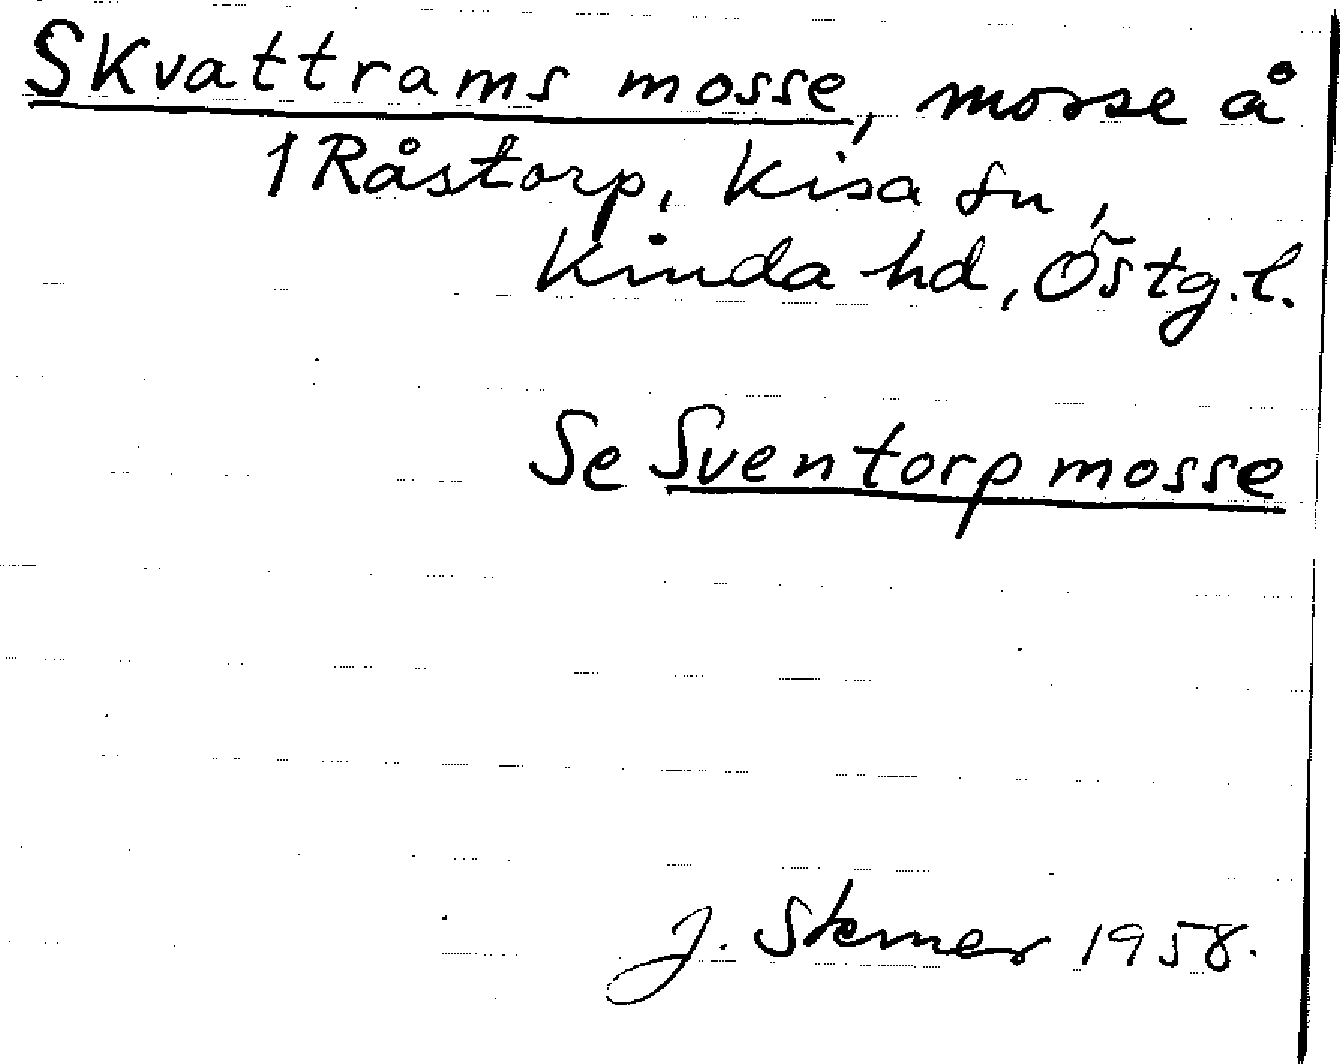 Skvattrams mosse, mosse å
1 Råstorp, Kisa sn,
Kinda hd, Östg. l.
Se Sventorp mosse
J. Sterner 1958.